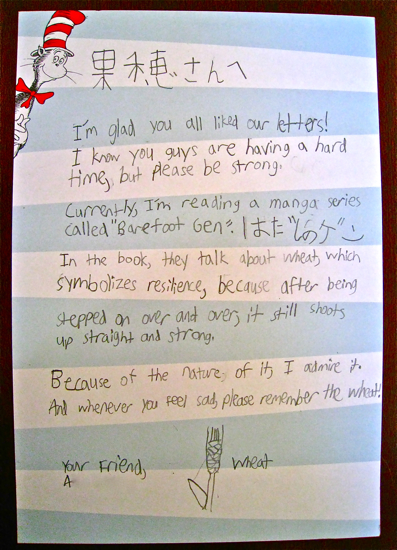 果穂さんへ
I'm glad you all liked our letters!
I know you guys are having a hard
time, but please be strong.
Currently, I'm reading a manga series
called "Barefoot Gen". はだしのゲン
In the book, they talk about wheat, which
symbolizes resilience, because after being
stepped on over and over, it still shoots
up straight and strong.
Because of the nature of it, I admire it.
And whenever you feel sad, please remember the wheat!
Your Friend,
A
Wheat